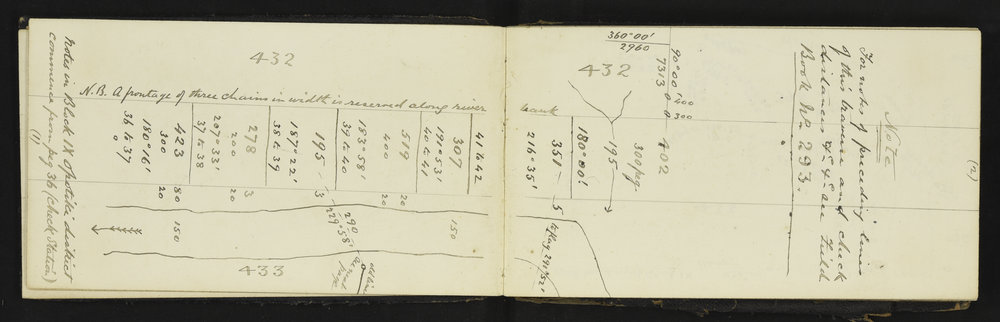 (1)
Notes in Block IX Opotiki district
commence from peg 36 (Check Station)
432
N.B. A frontage of three chains in width is reserved along river
bank
36 to 37
0
180°16'
300
20
423
80
150
37 to 38
207°33'
200
20
278
3
38 to 39
187°22'
195
3
39 to 40
183°58'
290
229°58'
400
20
519
20
40 to 41
191°53'
307
150
41 to 42
433
216°35'
351
5
180°00'
195
300 peg.
432
402
360°00'
2960
90°00'
7313
0
400
0
300
(2)
Note
For notes of preceding lines
of this traverse and check
distances &c &c see Field
Book No. 293.